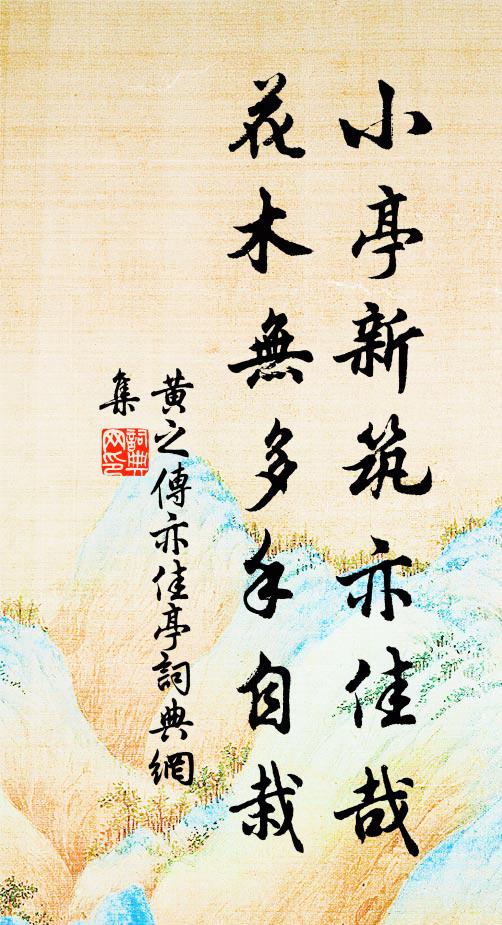 小亭新筑亦佳哉
花木無多手自栽
黄之傳亦佳亭詞典網
集
詞典
网印